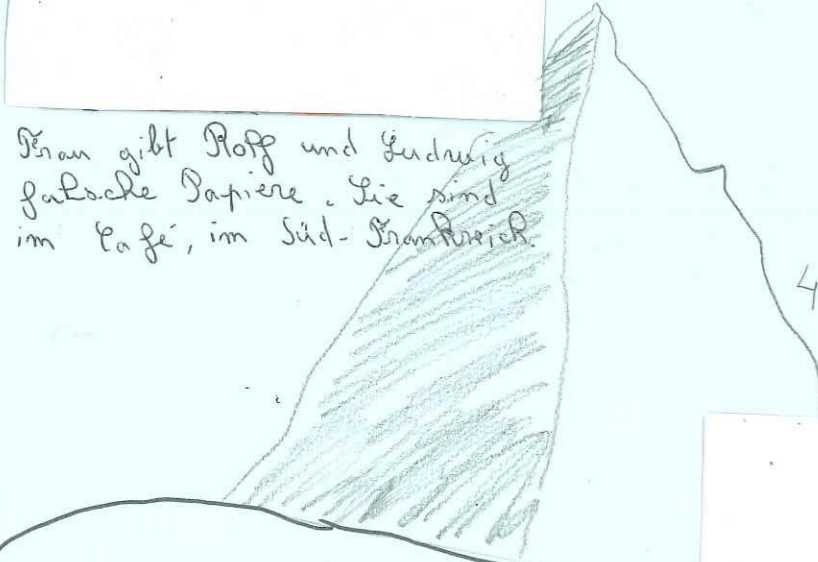 Fran gibt Rolf und Ludwig
falsche Papiere. Sie sind
im Café, im Süd-Frankreich.
4